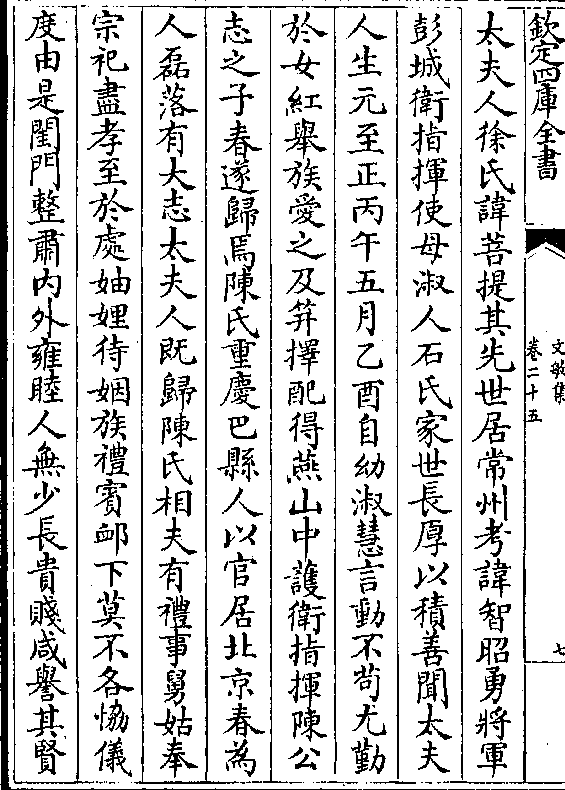 欽定四庫全書
文敏集
卷二十五
七
太夫人徐氏諱菩提其先世居常州考諱智昭勇將軍
彭城衛指揮使母淑人石氏家世長厚以積善聞太夫
人生元至正丙午五月乙酉自幼淑慧言動不苟尤勤
於女紅舉族愛之及笄擇配得燕山中護衛指揮陳公
志之子春遂歸焉陳氏重慶巴縣人以官居北京春為
人磊落有大志太夫人既歸陳氏相夫有禮事舅姑奉
宗祀盡孝至於處妯娌待姻族禮賓卹下莫不各恊儀
度由是閨門整肅内外雍睦人無少長貴賤咸譽其賢